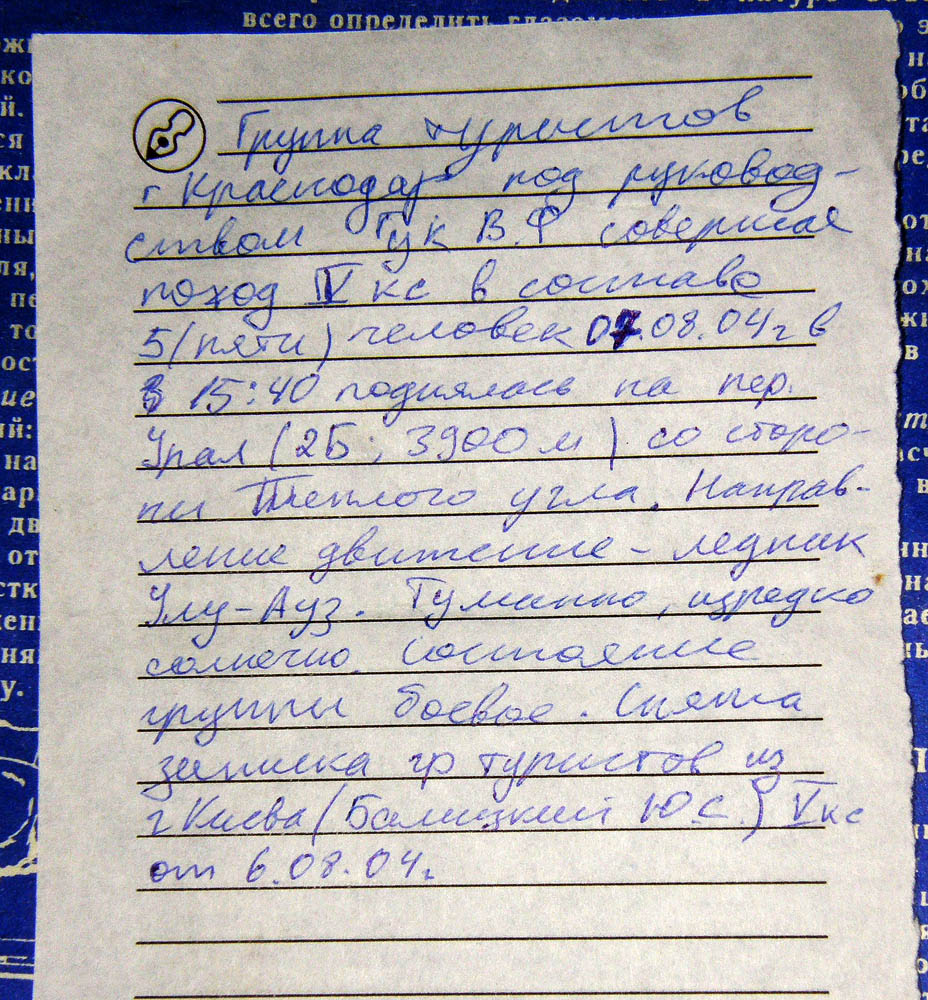 всего определить глазомер
Группа туристов
г Краснодар под руковод-
ством Гук В.Ф совершая
поход IV кс в составе
5 (пяти) человек 07.08.04г в
15:40 поднялась на пер.
Урал (2Б; 3900 м) со сторо-
ны Теплого угла. Направ-
ление движение - ледник
Улу-Ауз. Туманно, изредка
солнечно. Состояние
группы боевое. Снята
записка гр туристов из
г Киева (Балицкий Ю.С.) V кс
от 6.08.04г.